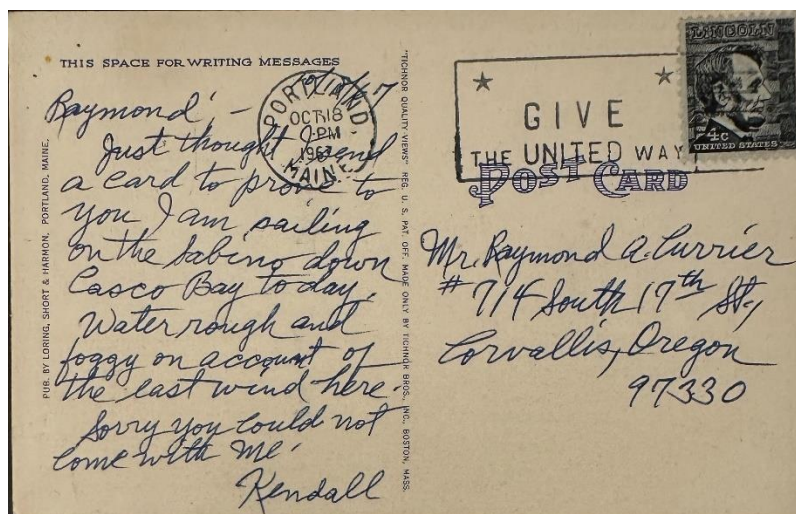 THIS SPACE FOR WRITING MESSAGES
10/18/67
Raymond! -
Just thought I send
a card to prove to
you I am sailing
on the Sabino down
Casco Bay today.
Water rough and
foggy on account of
the east wind here.
Sorry you could not
come with me.
Kendall
PUB. BY LORING, SHORT & HARMON, PORTLAND, MAINE.
"TICHNOR QUALITY VIEWS" REG. U. S. PAT. OFF. MADE ONLY BY TICHNOR BROS., INC., BOSTON, MASS.
PORTLAND
OCT 18
PM
1967
MAINE
GIVE
THE UNITED WAY
LINCOLN
4c
UNITED STATES
POST CARD
Mr. Raymond A. Currier
# 714 South 17th St.,
Corvallis, Oregon
97330